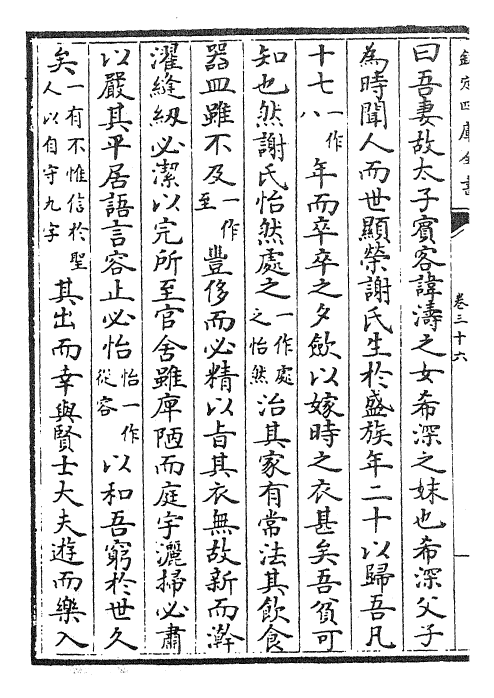 欽定四庫全書
卷三十六
曰吾妻故太子賓客諱濤之女希深之妹也希深父子
為時聞人而世顯榮謝氏生於盛族年二十以歸吾凡
十七一作八年而卒卒之夕斂以嫁時之衣甚矣吾貧可
知也然謝氏怡然處之一作處之怡然治其家有常法其飲食
器皿雖不及一作至豐侈而必精以旨其衣無故新而澣
濯縫紉必潔以完所至官舍雖庳陋而庭宇灑掃必肅
以嚴其平居語言容止必怡怡一作從容以和吾窮於世久
矣一有不惟信於聖人以自守九字其出而幸與賢士大夫遊而樂入